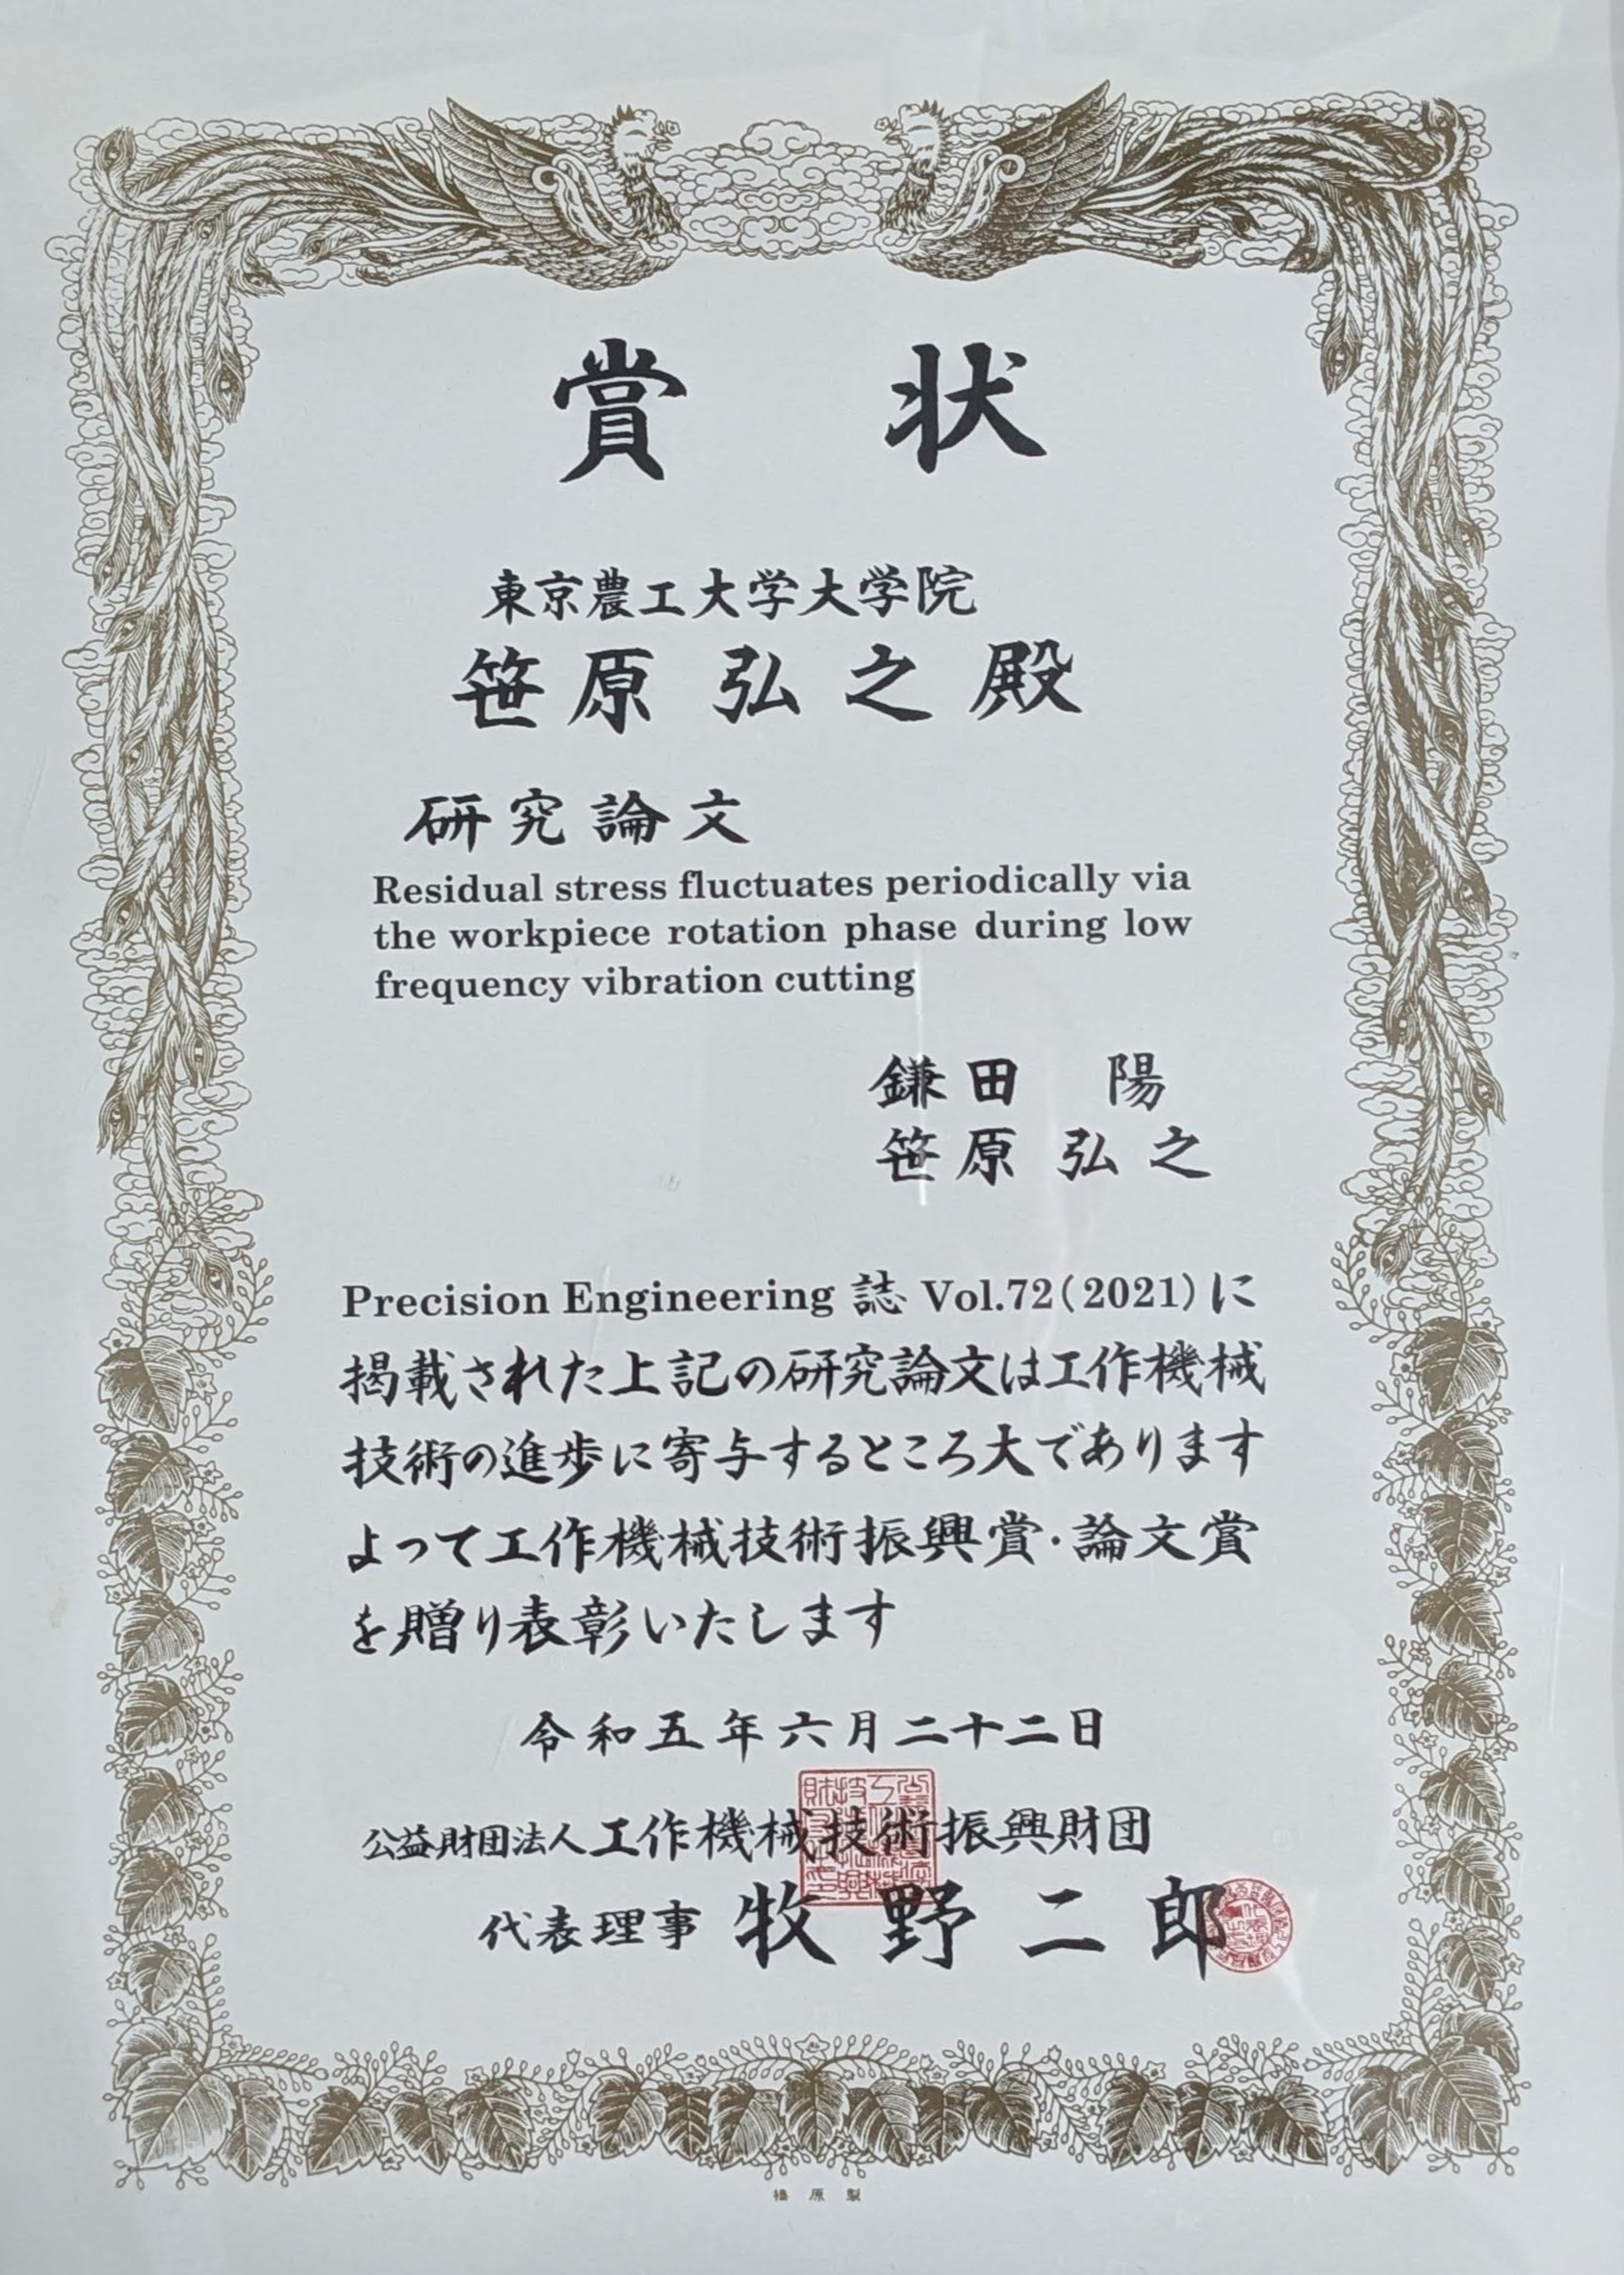 賞状
東京農工大学大学院
笹原弘之殿
研究論文
Residual stress fluctuates periodically via
the workpiece rotation phase during low
frequency vibration cutting
鎌田 陽
笹原弘之
Precision Engineering 誌 Vol.72(2021)に
掲載された上記の研究論文は工作機械
技術の進歩に寄与するところ大であります
よって工作機械技術振興賞·論文賞
を贈り表彰いたします
令和五年六月二十二日
公益財団法人工作機械技術振興財団
代表理事 牧野二郎